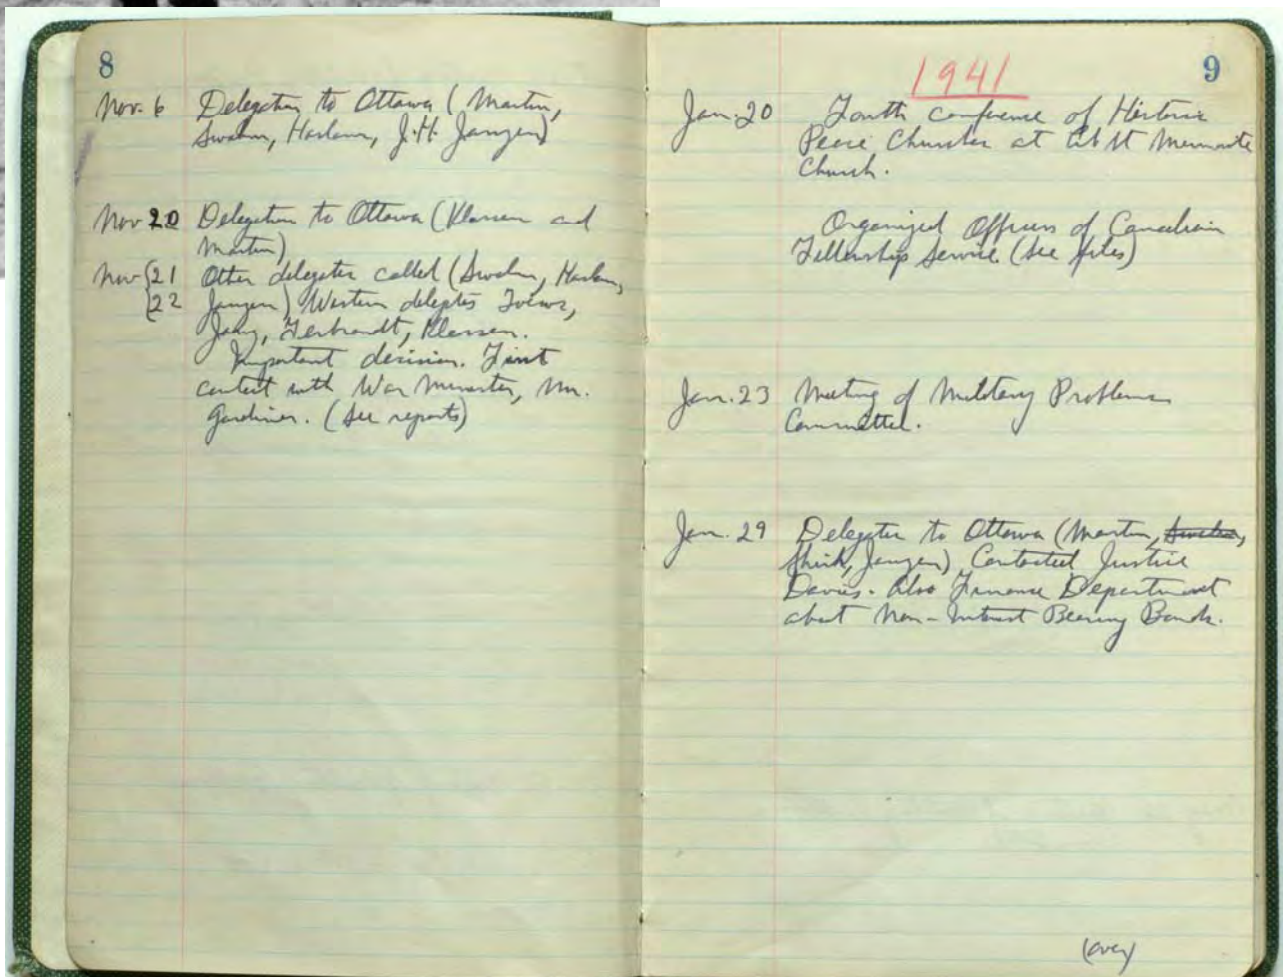 8
Nov. 6 Delegation to Ottawa (Martin,
Swalm, Harlan, J.H. Janzen)
Nov 20 Delegation to Ottawa (Klassen and
Martin)
Nov {21 Other delegates called (Swalm,
{22 Janzen) Western delegates Toews,
Janz, Gerbrandt, Klassen.
Important decision. First
contact with War Minister, Mr.
Gardiner. (See reports)
1941
9
Jan. 20 Fourth conference of Historic
Peace Churches at Mennonite
Church.
Organized Officers of Canadian
Fellowship Service (see files)
Jan. 23 Meeting of Military Problems
Committee.
Jan. 29 Delegates to Ottawa (Martin, Swalm,
Shirk, Janzen) Contacted Justice
Davis. Also Finance Department
about Non-Interest Bearing Bonds.
(over)